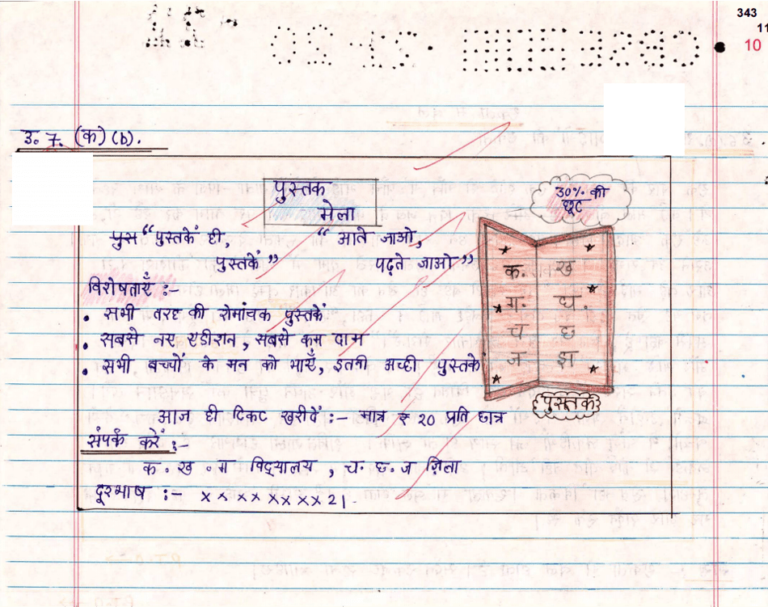 343
11
10
CBSE
उ० 7. (क) (b).
पुस्तक
मेला
30% की
छूट
पुस "पुस्तकें ही,
पुस्तकें"
"आते जाओ,
पढ़ते जाओ"
विशेषताएँ :-
• सभी तरह की रोमांचक पुस्तकें
• सबसे नए एडीशन, सबसे कम दाम
• सभी बच्चों के मन को भाएँ, इतनी अच्छी पुस्तकें
क. ख
ग. घ.
च छ
ज झ
पुस्तक
आज ही टिकट खरीदें :- मात्र ₹ 20 प्रति छात्र
संपर्क करें :-
क ० ख ० ग विद्यालय, च. छ. ज ज़िला
दूरभाष :- x x x x x x x x 21.